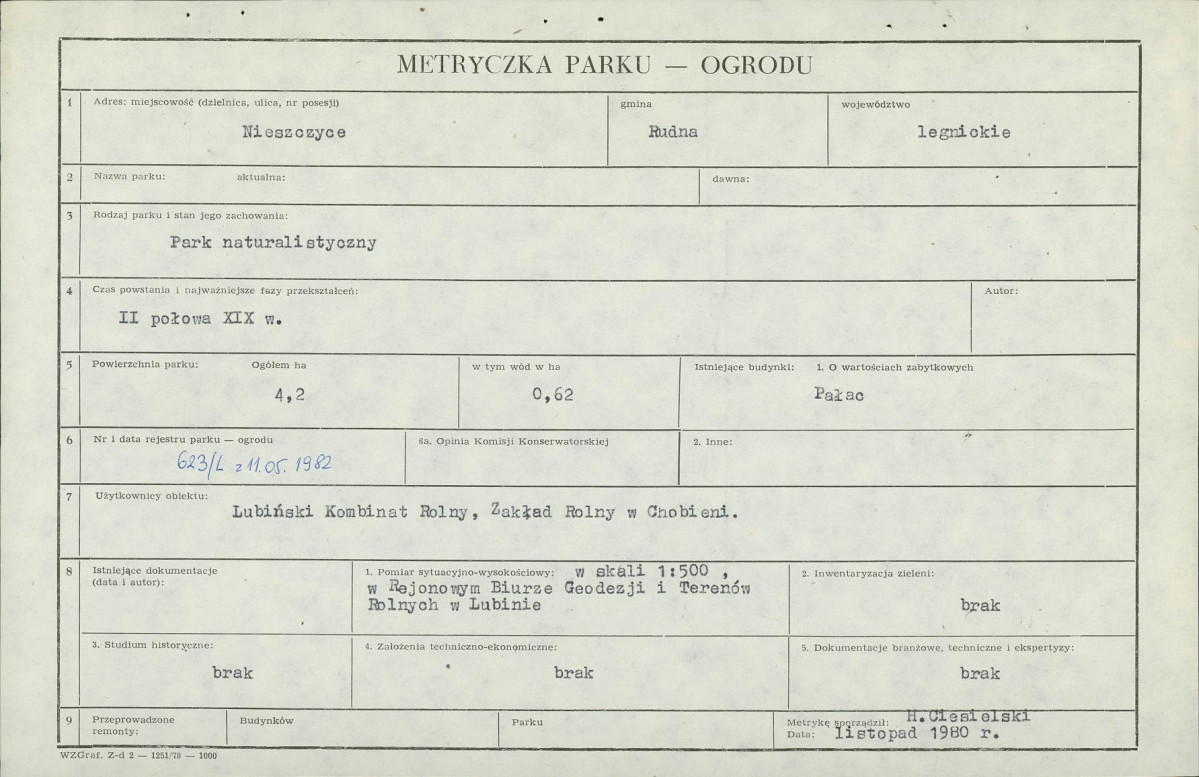 METRYCZKA PARKU — OGRODU
1 Adres: miejscowość (dzielnica, ulica, nr posesji) gmina województwo
Nieszczyce Rudna legnickie
2 Nazwa parku: aktualna: dawna:
3 Rodzaj parku i stan jego zachowania:
Park naturalistyczny
4 Czas powstania i najważniejsze fazy przekształceń: Autor:
II połowa XIX w.
5 Powierzchnia parku: Ogółem ha w tym wód w ha Istniejące budynki: 1. O wartościach zabytkowych
4,2 0,62 Pałac
6 Nr i data rejestru parku — ogrodu 6a. Opinia Komisji Konserwatorskiej 2. Inne:
623/L z 11.05.1982
7 Użytkownicy obiektu:
Lubiński Kombinat Rolny, Zakład Rolny w Chobieni.
8 Istniejące dokumentacje (data i autor):
1. Pomiar sytuacyjno-wysokościowy: w skali 1:500 ,
w Rejonowym Biurze Geodezji i Terenów
Rolnych w Lubinie
2. Inwentaryzacja zieleni:
brak
3. Studium historyczne: 4. Założenia techniczno-ekonomiczne: 5. Dokumentacje branżowe, techniczne i ekspertyzy:
brak brak brak
9 Przeprowadzone remonty: Budynków Parku
Metrykę sporządził: H.Ciesielski
Data: listopad 1980 r.
WZGraf. Z-d 2 — 1251/78 — 1000